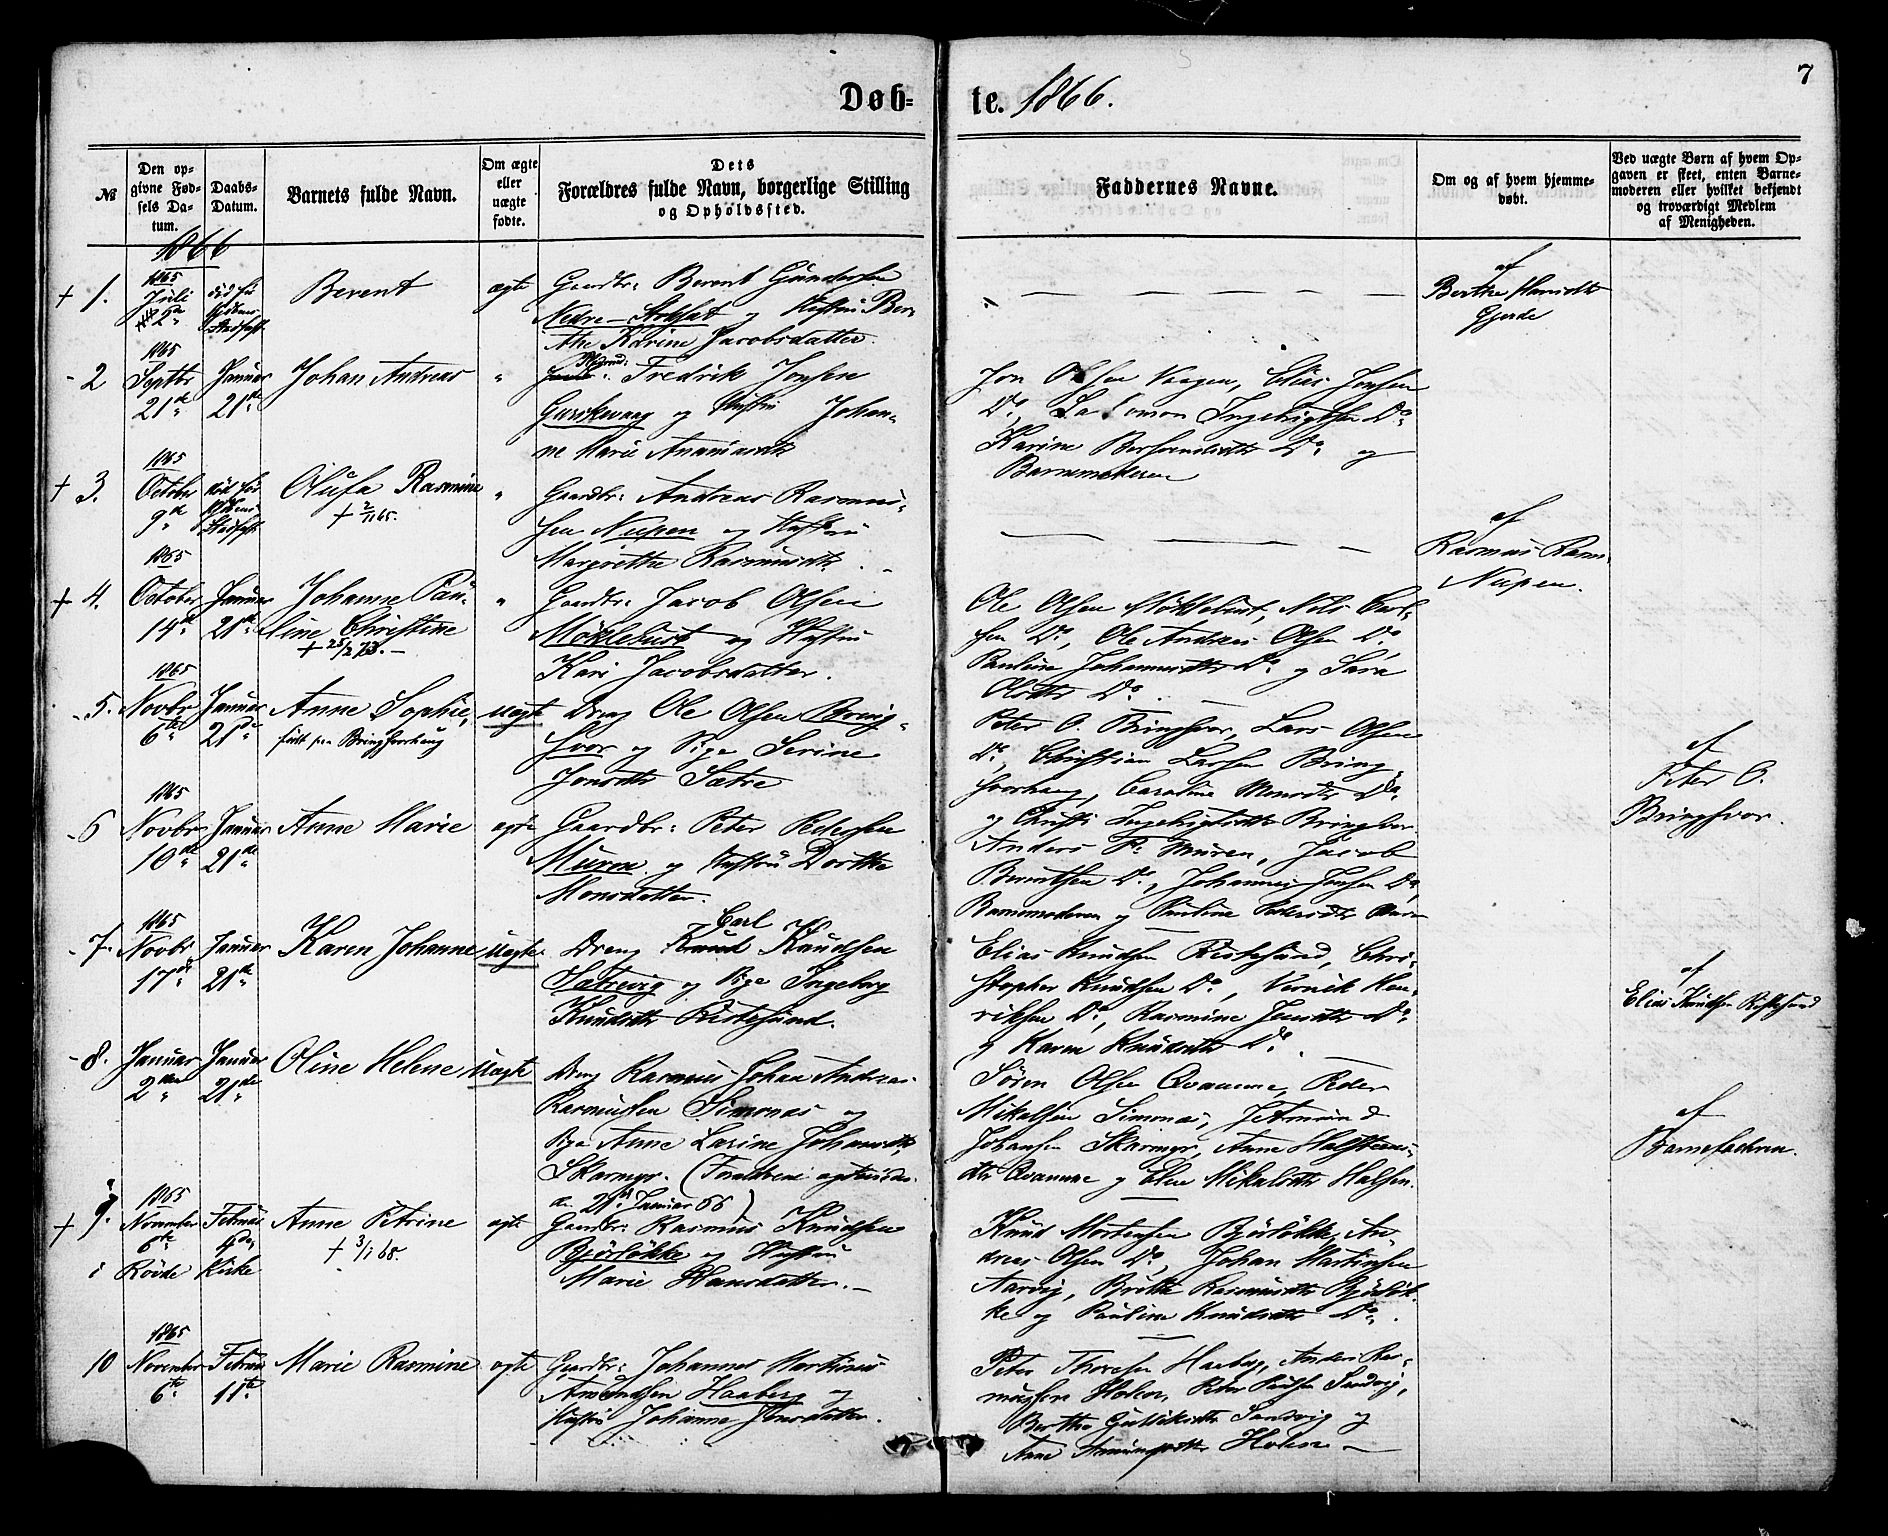 7
Døb= te. 1866.
№
Den op-
givne Fød-
sels Da-
tum.
Daabs-
Datum.
Barnets fulde Navn.
Om ægte
eller
uægte
fødte.
Dets
Forældres fulde Navn, borgerlige Stilling
og Opholdssted.
Faddernes Navne.
Om og af hvem hjemme-
døbt.
Ved uægte Børn af hvem Op-
gaven er skeet, enten Barne-
moderen eller hvilket bekjendt
og troværdigt Medlem
af Menigheden.
1866
+ 1.
1865
Juli
2de
død før
Berent
ægte
Gaardbr: Berent Gundersen
Nedre- og Hustru Ber-
the Karine Jacobsdatter.
af
Berthe
Gjerde
- 2
1865
Septbr
21de
Januar
21de
Johan Andreas
"
Fredrik Jonsen
Gurskevaag og Hustru Johan-
ne Marie
Jon Olsen Vaagen, Elias Jonsen
Do, Salomon Ingebrigtsen Do
Karine Do og
Barnemoderen
+ 3.
1865
October
9de
død før
Olufa Rasmine
+ 2/11 65.
"
Gaardbr: Andreas Rasmus-
sen Nupen og Hustru
Margrethe Rasmusdtr.
af
Rasmus Rasm.
Nupen.
+ 4.
1865
October
14de
Januar
21de
Johanne Pau-
line Christine
+ 25/2 73.-
"
Gaardbr: Jacob Olsen
Möklebust og Hustru
Kari Jacobsdatter.
Ole Olsen Möklebust, Nils Carl-
sen Do, Ole Andreas Olsen Do,
Pauline Johannesdtr Do og Sara
Olsdtr Do.
- 5.
1865
Novbr
6te
Januar
21de
Anne Sophie,
født paa Bringsvorhaug
Uægte
Dreng Ole Olsen Bring-
svor og Pige Serine
Jonsdtr Sætre
Peter O. Bringsvor, Lars Olsen
Do, Christian Larsen Bring-
svorhaug, Caroline Monsdtr Do
og Christi Ingebrigtsdtr Bringsvor.
af
Peter O.
Bringsvor.
- 6
1865
Novbr
10de
Januar
21de
Anne Marie
ægte
Gaardbr: Peter Pedersen
Muren og Hustru Dorthe
Monsdatter.
Anders P. Muren, Jacob
Berntsen Do, Johannes Jensen Do,
Barnemoderen og Pauline Pedersdtr
- 7.
1865
Novbr
17de
Januar
21de
Karen Johanne
Uægte
Carl
Dreng Knud Knudsen
Sætrevig og Pige Ingeborg
Knudsdtr Röstesund.
Elias Knudsen Röstesund, Chri-
stopher Knudsen Do, Vernik Hen-
riksen Do, Rasmine Jensdtr Do
og Karen Knudsdtr Do.
af
Elias Knudsen Röstesund
- 8.
Januar
2den
Januar
21de
Oline Helene
Uægte
Dreng Rasmus Johan Andreas
Rasmussen Simonæs og
Pige Anne Larine Johansdtr
Skarmyr. (Forældrene ægteviede
den 21de Januar 66)
Sören Olsen Qvamme, Peder
Mikalsen Simonæs, Jetmund
Johansen Skarmyr, Anne Halsteens-
dtr Qvamme og Elen Mikalsdtr Halsen.
af
Barnefaderen.
+ 9.
1865
November
6te
Februar
4de
i Rövde Kirke
Anne Petrine
+ 3/1 68.
ægte
Gaardbr: Rasmus Knudsen
Björlökke og Hustru
Marie Hansdatter.-
Knud Mortensen Björlökke, An-
dreas Olsen Do, Johan Martinsen
Aarvig, Brithe Rasmusdtr Björlök-
ke og Pauline Knudsdtr Do.
10
1865
November
6te
Februar
11te
Marie Rasmine
ægte
Gaardbr: Johannes Martinus
Amundsen Haaberg og
Hustru Johanne Jensdatter.
Peter Thoresen Haaberg, Anders Ras-
mussen Holen, Peter Sandvig,
Berthe Gullikdtr Sandvig og
Anne Amundsdtr Holen-